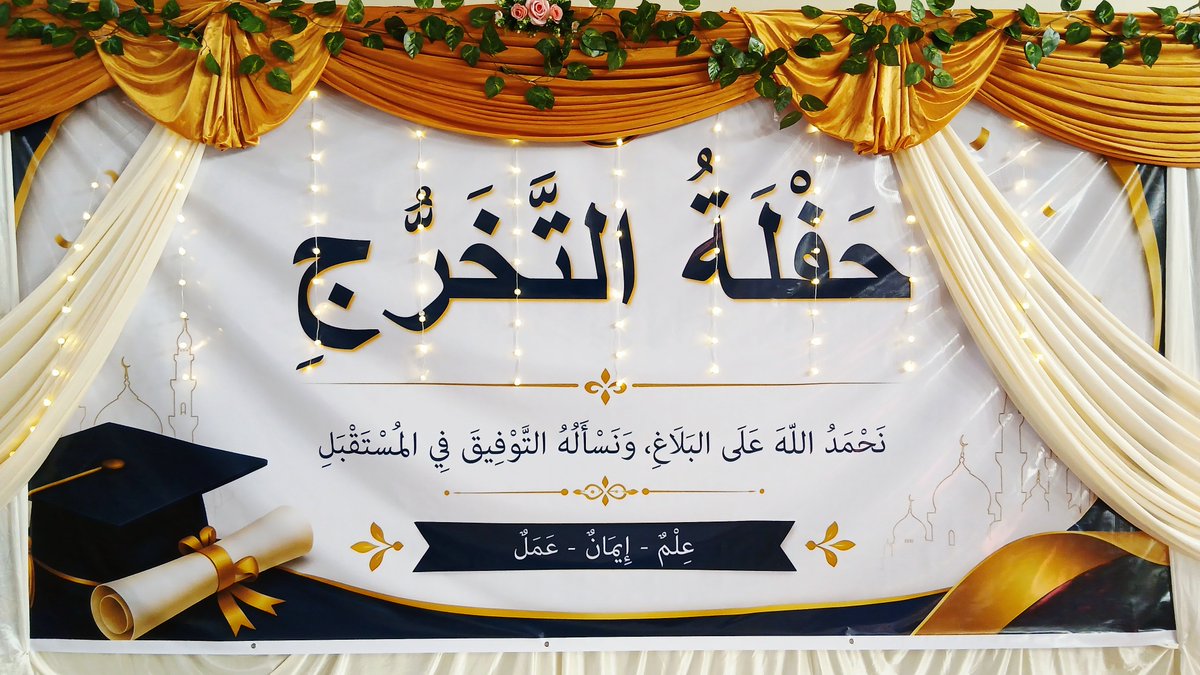 حَفْلَةُ التَّخَرُّجِ
نَحْمَدُ اللّهَ عَلَى البَلَاغِ، وَنَسْأَلُهُ التَّوْفِيقَ فِي المُسْتَقْبَلِ
عِلْمٌ - إِيمَانٌ - عَمَلٌ